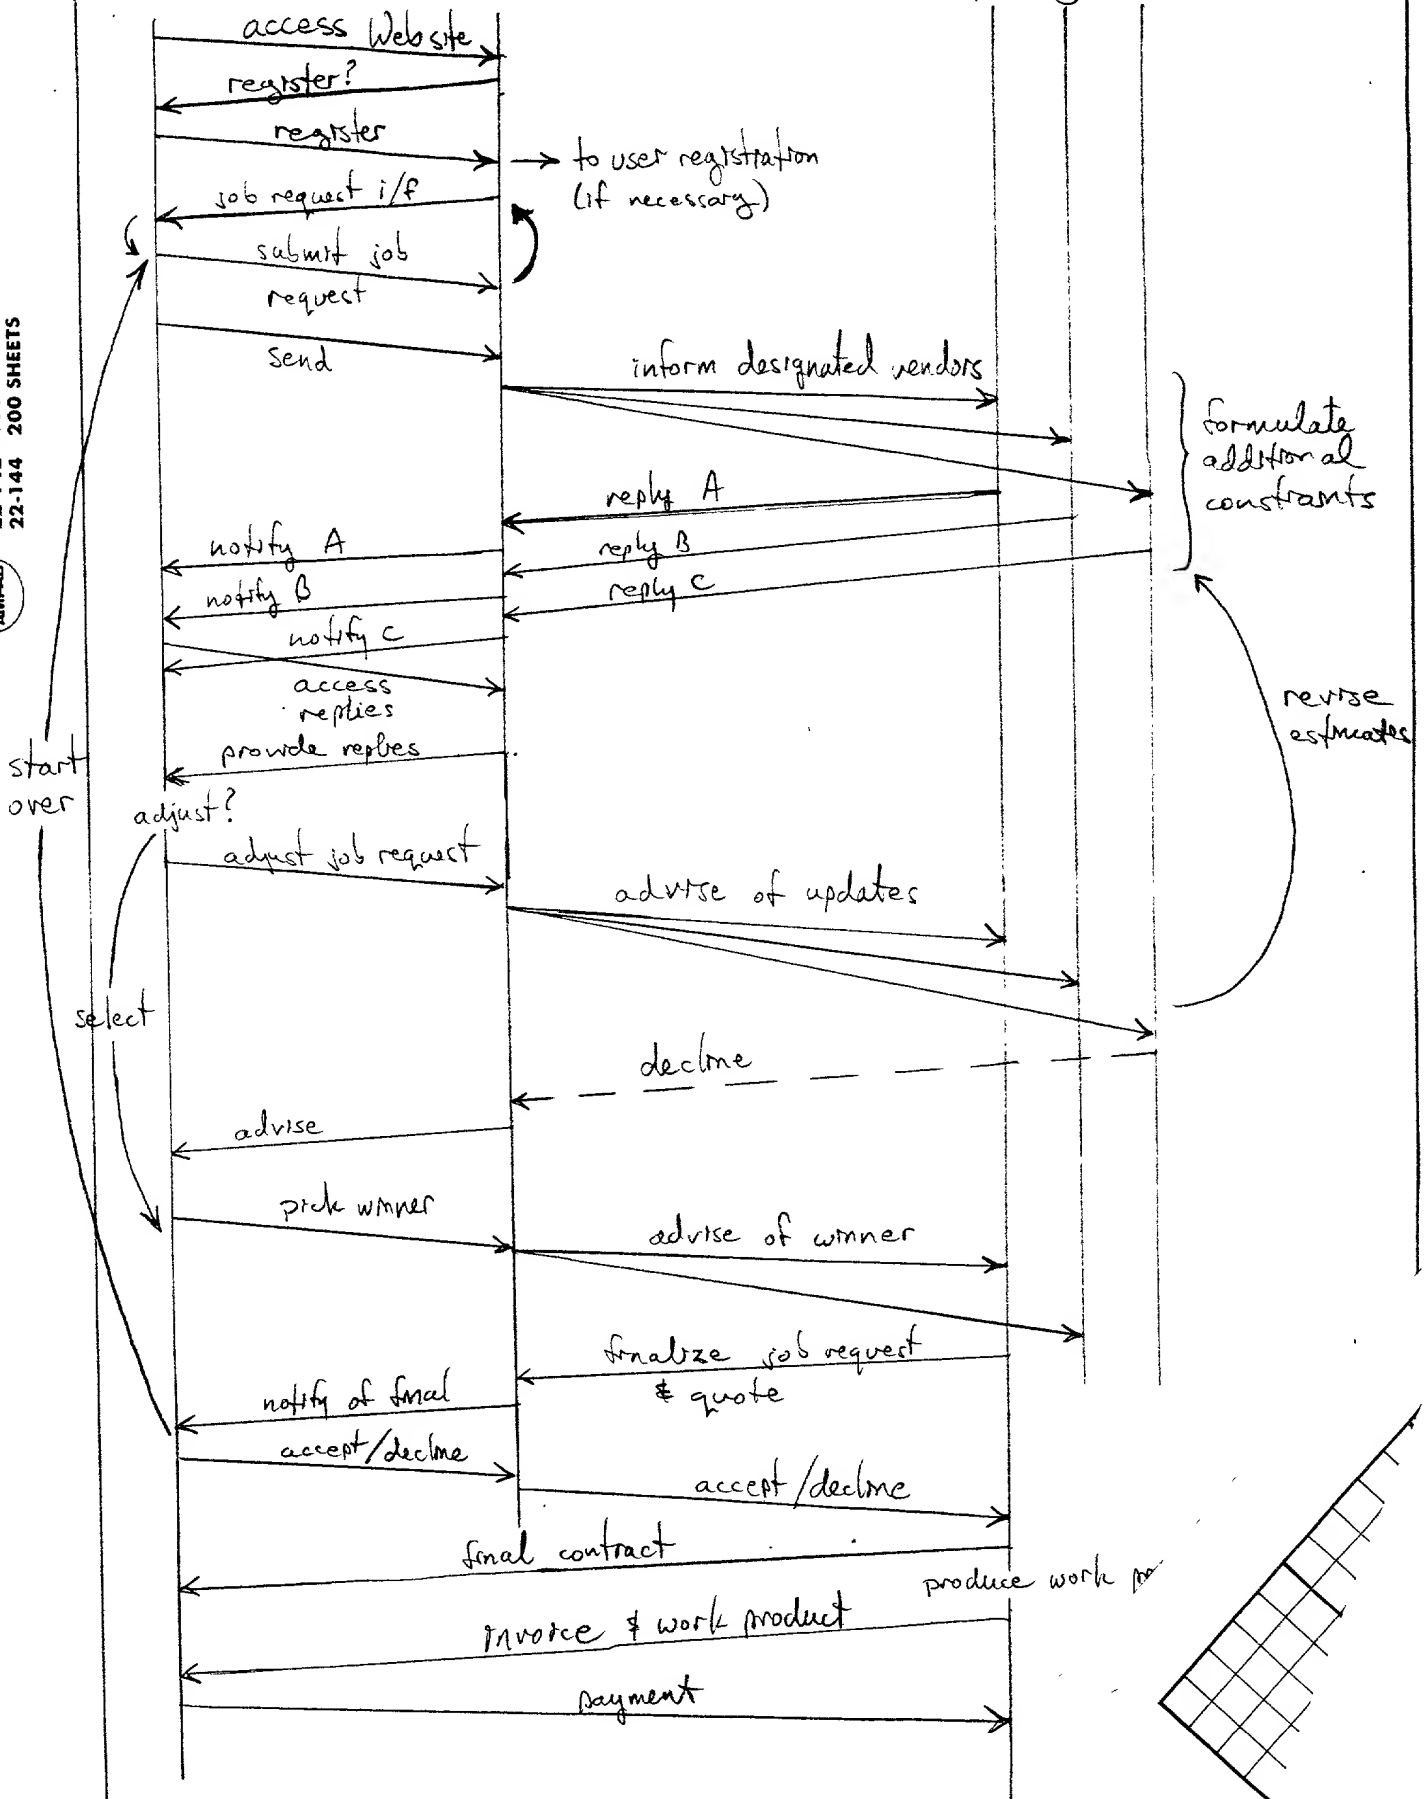 access Website
register?
register
to user registration
(if necessary)
job request i/f
submit job
request
send
22-144 200 SHEETS
inform designated vendors
formulate
additional
constraints
reply A
notify A
reply B
notify B
reply C
notify C
access
replies
provide replies
revise
estimates
start
over
adjust?
adjust job request
advise of updates
select
decline
advise
pick winner
advise of winner
finalize job request
& quote
notify of final
accept/decline
accept/decline
final contract
produce work
invoice & work product
payment